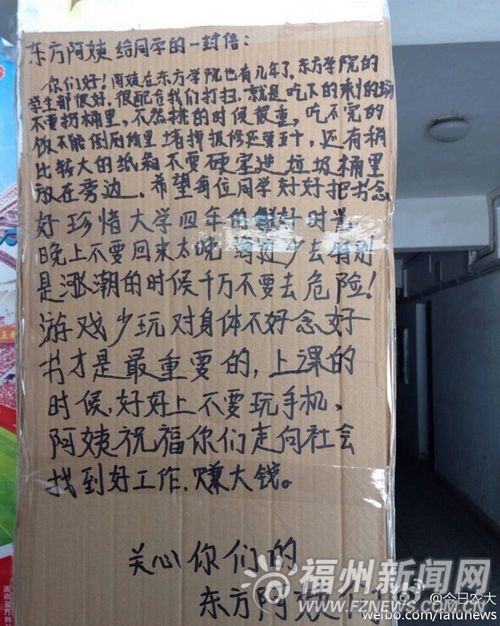 东方阿姨给同学的一封信：
你们好！阿姨在东方学院也有几年了，东方学院的
学生都很好，很配合我们打扫，就是吃下的剩的汤
不要拐桶里，不然挑的时候很重，吃不完的
饭不能倒厕所里堵掉拔修还要五十，还有稍
比较大的纸箱不要硬塞进垃圾桶里
放在旁边。希望每位同学好好把书念
好珍惜大学四年的好时光
晚上不要回来太晚海边少去特别
是涨潮的时候千万不要去危险！
游戏少玩对身体不好念好
书才是最重要的，上课的
时候，好好上不要玩手机，
阿姨祝福你们走向社会
找到好工作，赚大钱。
关心你们的
东方阿姨
福州新闻网
WWW.FZNEWS.COM.CN
@今日农大
weibo.com/fafunews